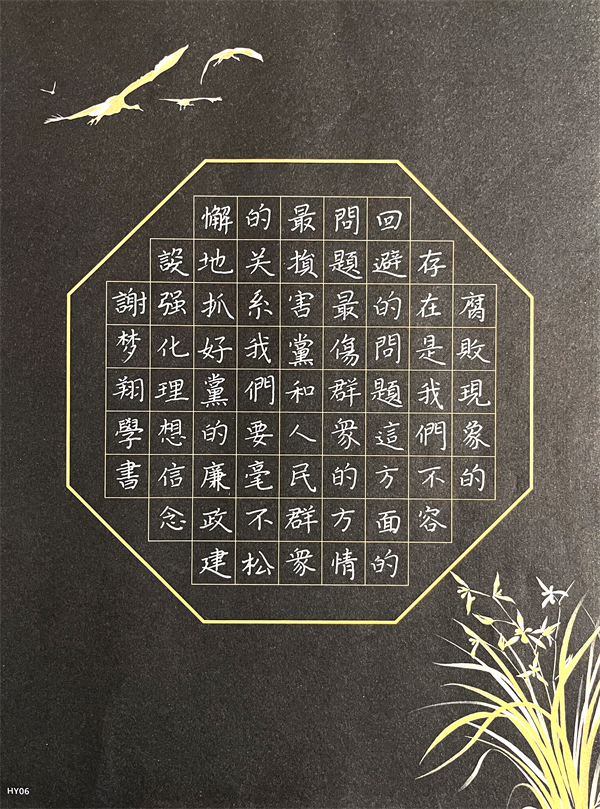 腐敗現象的
存在是我們不容
回避的問題這方面的
問題最傷群衆的方情
最損害黨和人民群衆
的关系我們要毫不松
懈地抓好黨的廉政建
設强化理想信念
謝梦翔學書
HY06